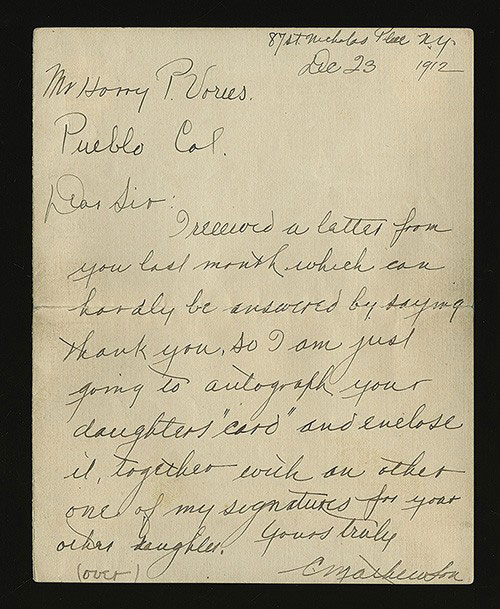 87 St. Nicholas Place N.Y.
Dec 23 1912
Mr Harry P. Vories.
Pueblo Col.
Dear Sir:
I received a letter from
you last month which can
hardly be answered by saying
thank you, so I am just
going to autograph your
daughters "card" and enclose
it, together with an other
one of my signatures for your
other daughter. Yours truly
(over) C Mathewson